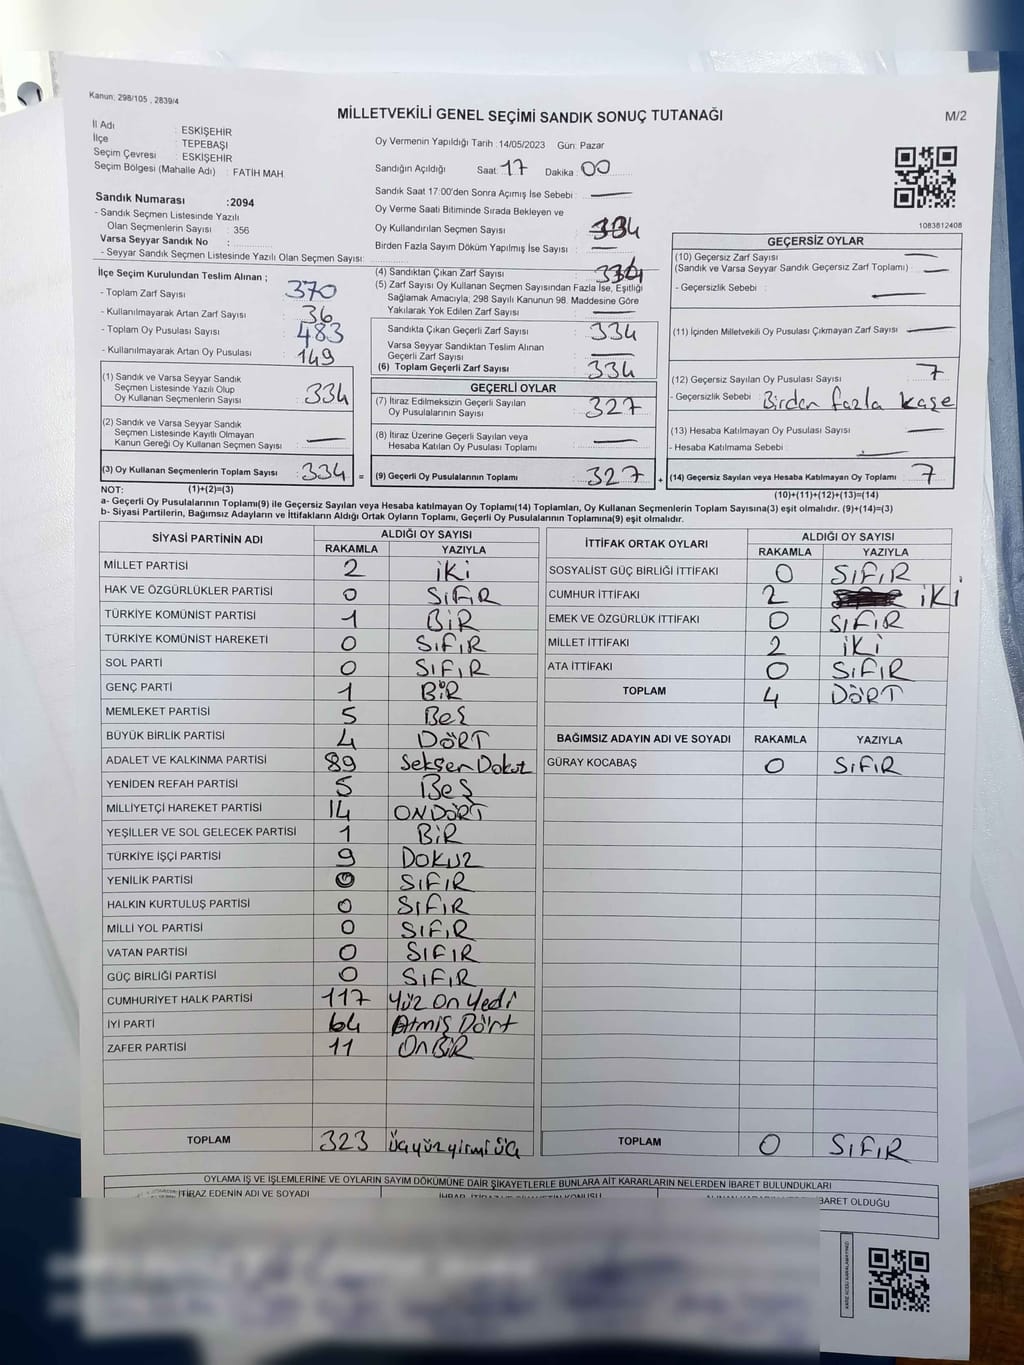 Kanun: 298/105 , 2839/4
MİLLETVEKİLİ GENEL SEÇİMİ SANDIK SONUÇ TUTANAĞI
M/2
İl Adı : ESKİŞEHİR
İlçe : TEPEBAŞI
Seçim Çevresi : ESKİŞEHİR
Seçim Bölgesi (Mahalle Adı) : FATİH MAH.
Sandık Numarası :2094
- Sandık Seçmen Listesinde Yazılı
Olan Seçmenlerin Sayısı : 356
Varsa Seyyar Sandık No :
- Seyyar Sandık Seçmen Listesinde Yazılı Olan Seçmen Sayısı:
Oy Vermenin Yapıldığı Tarih : 14/05/2023 Gün: Pazar
Sandığın Açıldığı Saat: 17 Dakika : 00
Sandık Saat 17:00'den Sonra Açımış İse Sebebi :
Oy Verme Saati Bitiminde Sırada Bekleyen ve
Oy Kullandırılan Seçmen Sayısı : 334
Birden Fazla Sayım Döküm Yapılmış İse Sayısı :
1083812408
İlçe Seçim Kurulundan Teslim Alınan ;
- Toplam Zarf Sayısı : 370
- Kullanılmayarak Artan Zarf Sayısı : 36
- Toplam Oy Pusulası Sayısı : 483
- Kullanılmayarak Artan Oy Pusulası : 149
(1) Sandık ve Varsa Seyyar Sandık
Seçmen Listesinde Yazılı Olup
Oy Kullanan Seçmenlerin Sayısı : 334
(2) Sandık ve Varsa Seyyar Sandık
Seçmen Listesinde Kayıtlı Olmayan
Kanun Gereği Oy Kullanan Seçmen Sayısı :
(3) Oy Kullanan Seçmenlerin Toplam Sayısı : 334 =
(4) Sandıktan Çıkan Zarf Sayısı : 334
(5) Zarf Sayısı Oy Kullanan Seçmen Sayısından Fazla İse, Eşitliği
Sağlamak Amacıyla; 298 Sayılı Kanunun 98. Maddesine Göre
Yakılarak Yok Edilen Zarf Sayısı :
Sandıkta Çıkan Geçerli Zarf Sayısı : 334
Varsa Seyyar Sandıktan Teslim Alınan
Geçerli Zarf Sayısı :
(6) Toplam Geçerli Zarf Sayısı : 334
GEÇERLİ OYLAR
(7) İtiraz Edilmeksizin Geçerli Sayılan
Oy Pusulalarının Sayısı : 327
(8) İtiraz Üzerine Geçerli Sayılan veya
Hesaba Katılan Oy Pusulası Toplamı :
(9) Geçerli Oy Pusulalarının Toplamı : 327 +
GEÇERSİZ OYLAR
(10) Geçersiz Zarf Sayısı :
(Sandık ve Varsa Seyyar Sandık Geçersiz Zarf Toplamı) :
- Geçersizlik Sebebi :
(11) İçinden Milletvekili Oy Pusulası Çıkmayan Zarf Sayısı :
(12) Geçersiz Sayılan Oy Pusulası Sayısı : 7
- Geçersizlik Sebebi : Birden fazla kaşe
(13) Hesaba Katılmayan Oy Pusulası Sayısı :
- Hesaba Katılmama Sebebi :
(14) Geçersiz Sayılan veya Hesaba Katılmayan Oy Toplamı : 7
NOT: (1)+(2)=(3)
(10)+(11)+(12)+(13)=(14)
a- Geçerli Oy Pusulalarının Toplamı(9) ile Geçersiz Sayılan veya Hesaba katılmayan Oy Toplamı(14) Toplamları, Oy Kullanan Seçmenlerin Toplam Sayısına(3) eşit olmalıdır. (9)+(14)=(3)
b- Siyasi Partilerin, Bağımsız Adayların ve İttifakların Aldığı Ortak Oyların Toplamı, Geçerli Oy Pusulalarının Toplamına(9) eşit olmalıdır.
SİYASİ PARTİNİN ADI ALDIĞI OY SAYISI
RAKAMLA YAZIYLA
MİLLET PARTİSİ 2 İKİ
HAK VE ÖZGÜRLÜKLER PARTİSİ 0 SIFIR
TÜRKİYE KOMÜNİST PARTİSİ 1 BİR
TÜRKİYE KOMÜNİST HAREKETİ 0 SIFIR
SOL PARTİ 0 SIFIR
GENÇ PARTİ 1 BİR
MEMLEKET PARTİSİ 5 BEŞ
BÜYÜK BİRLİK PARTİSİ 4 DÖRT
ADALET VE KALKINMA PARTİSİ 89 Seksen Dokuz
YENİDEN REFAH PARTİSİ 5 BEŞ
MİLLİYETÇİ HAREKET PARTİSİ 14 ONDÖRT
YEŞİLLER VE SOL GELECEK PARTİSİ 1 BİR
TÜRKİYE İŞÇİ PARTİSİ 9 DOKUZ
YENİLİK PARTİSİ 0 SIFIR
HALKIN KURTULUŞ PARTİSİ 0 SIFIR
MİLLİ YOL PARTİSİ 0 SIFIR
VATAN PARTİSİ 0 SIFIR
GÜÇ BİRLİĞİ PARTİSİ 0 SIFIR
CUMHURİYET HALK PARTİSİ 117 Yüz On Yedi
İYİ PARTİ 64 Atmış Dört
ZAFER PARTİSİ 11 On BİR
TOPLAM 323 üçyüzyirmi üç
İTTİFAK ORTAK OYLARI ALDIĞI OY SAYISI
RAKAMLA YAZIYLA
SOSYALİST GÜÇ BİRLİĞİ İTTİFAKI 0 SIFIR
CUMHUR İTTİFAKI 2 İKİ
EMEK VE ÖZGÜRLÜK İTTİFAKI 0 SIFIR
MİLLET İTTİFAKI 2 İKİ
ATA İTTİFAKI 0 SIFIR
TOPLAM 4 DÖRT
BAĞIMSIZ ADAYIN ADI VE SOYADI RAKAMLA YAZIYLA
GÜRAY KOCABAŞ 0 SIFIR
TOPLAM 0 SIFIR
OYLAMA İŞ VE İŞLEMLERİNE VE OYLARIN SAYIM DÖKÜMÜNE DAİR ŞİKAYETLERLE BUNLARA AİT KARARLARIN NELERDEN İBARET BULUNDUKLARI
İTİRAZ EDENİN ADI VE SOYADI
İBARET OLDUĞU